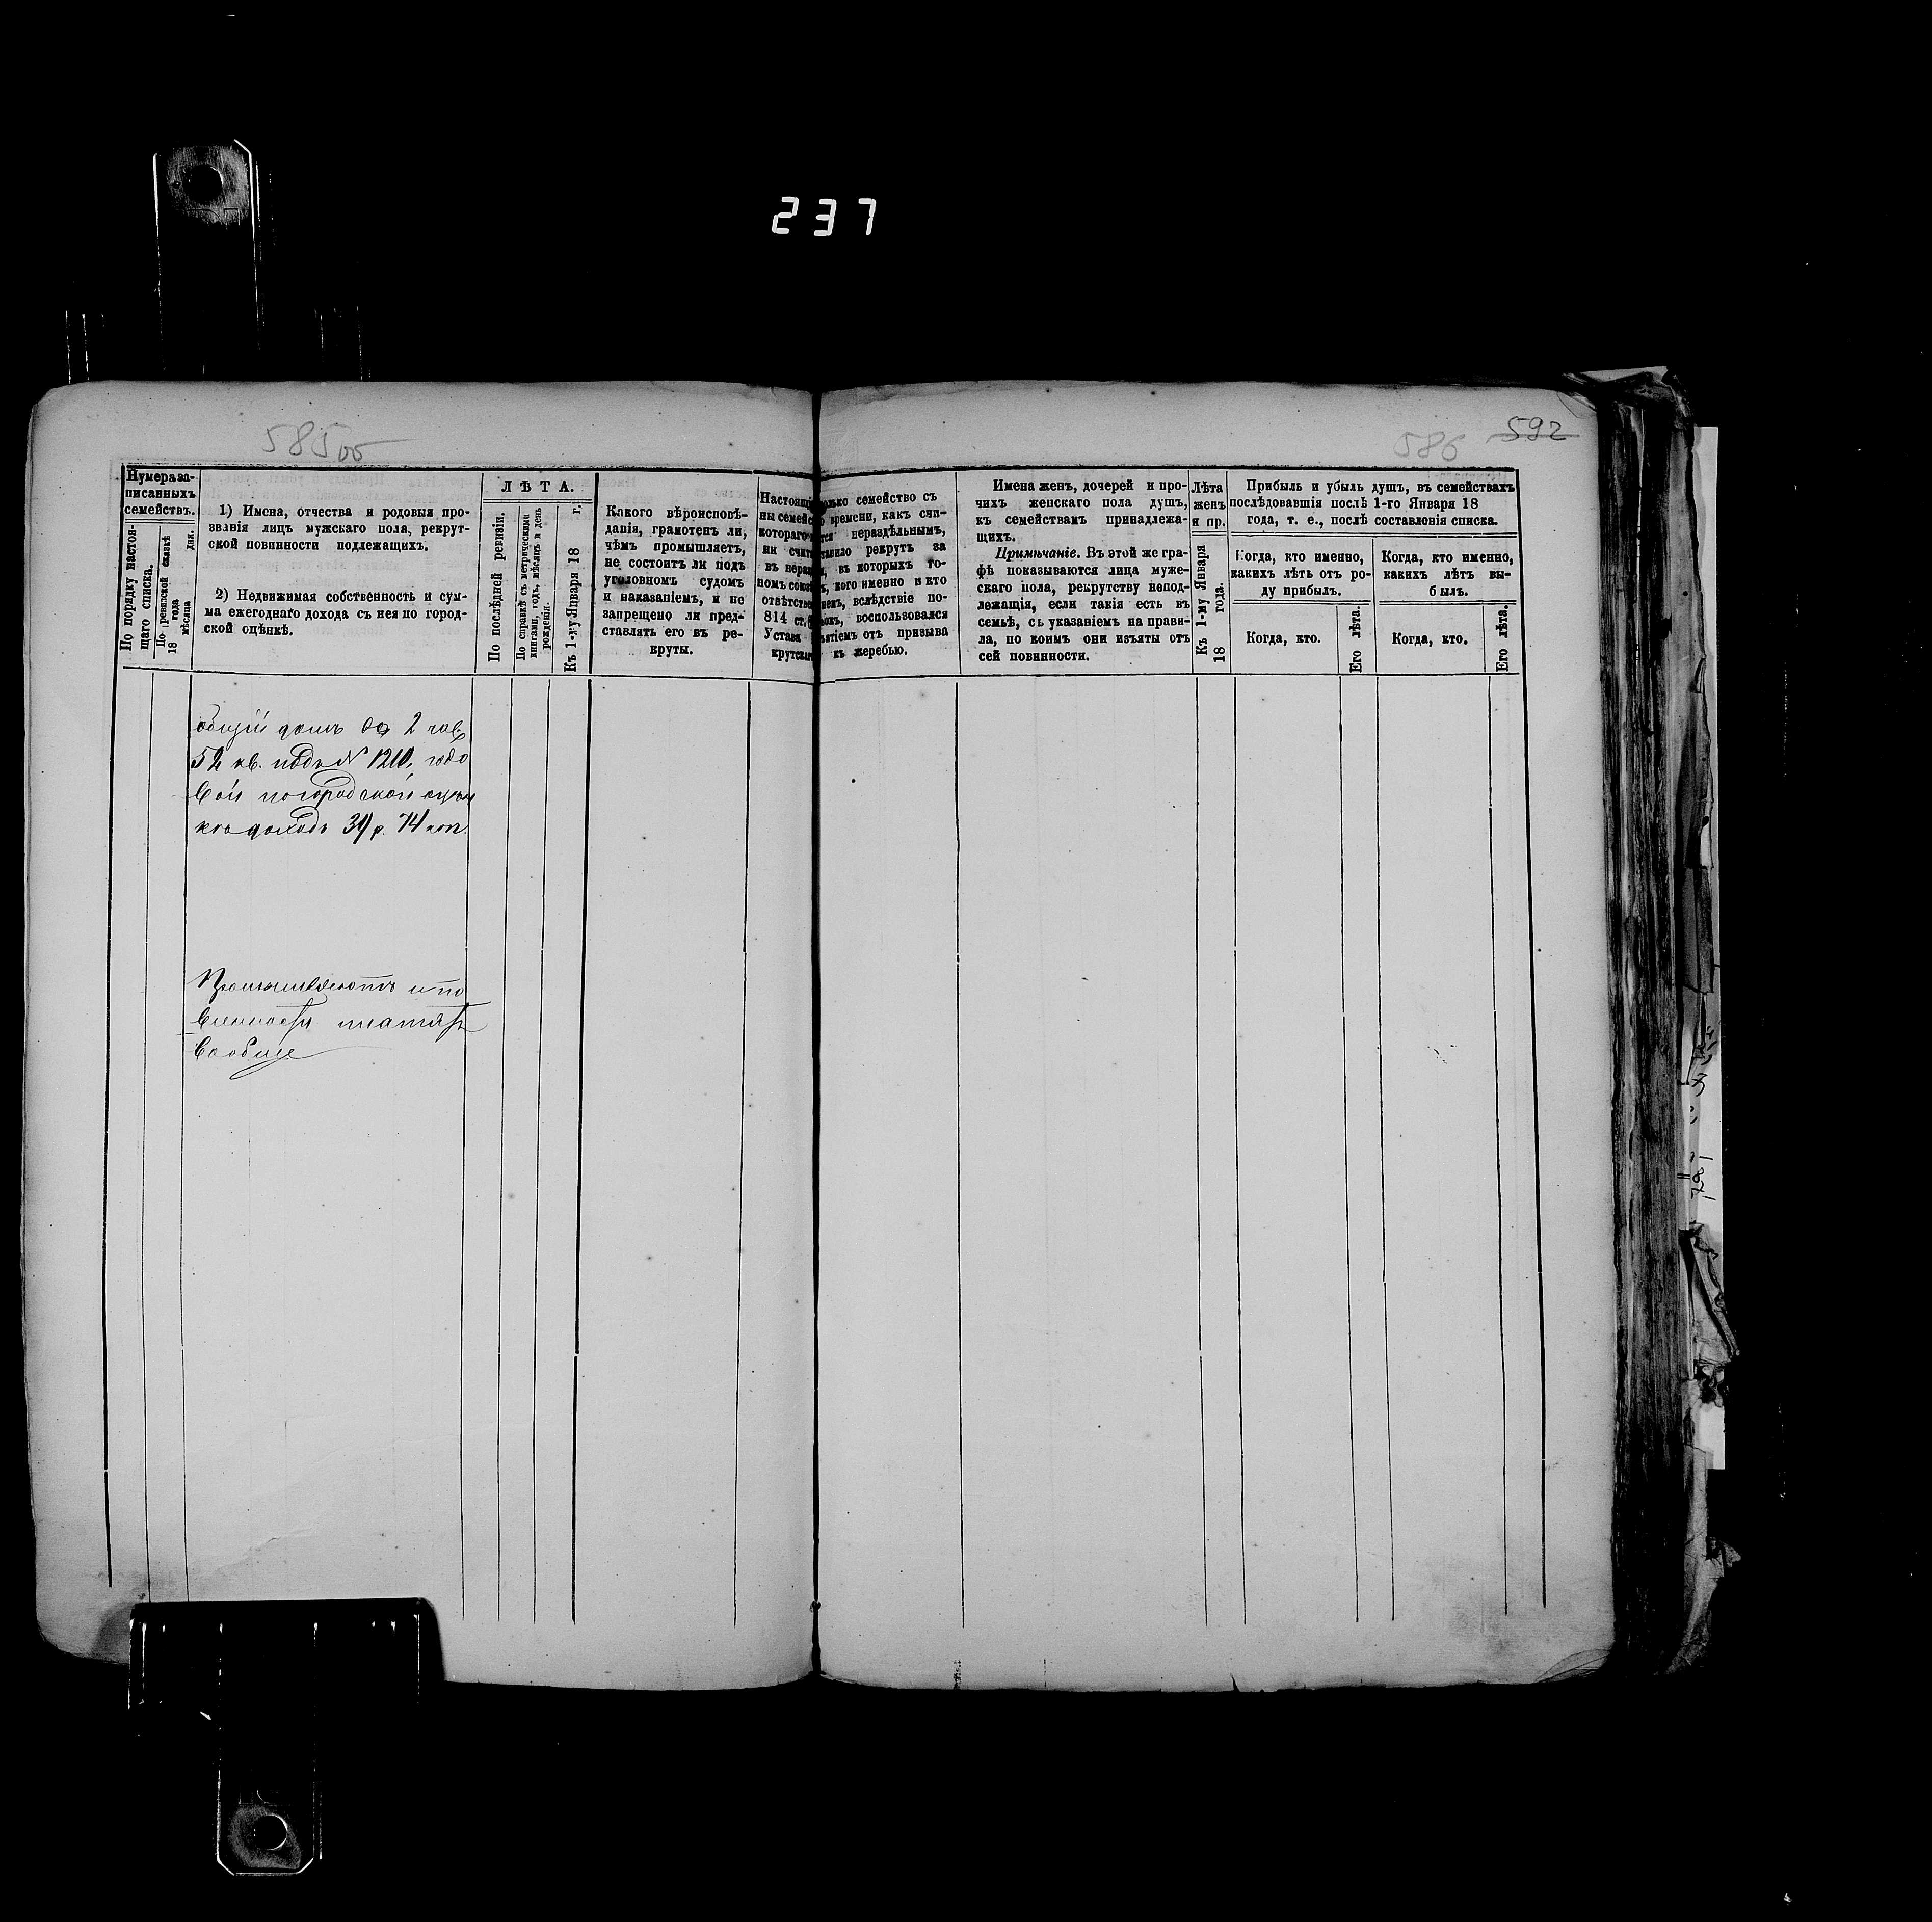 237
585 об
586
592
Нумера за-
писанныхъ
семействъ.
По порядку настоя-
щаго списка.
По ревизской сказкѣ
18 года
мѣсяца дня.
1) Имена, отчества и родовыя про-
званія лицъ мужскаго пола, рекрут-
ской повинности подлежащихъ.
2) Недвижимая собственность и сум-
ма ежегоднаго дохода съ нея по город-
ской оцѣнкѣ.
ЛѢТА.
По послѣдней ревизіи.
По справкѣ съ метрическими
книгами, годъ, мѣсяцъ и день
рожденія.
Къ 1-му Января 18 г.
Какого вѣроисповѣ-
данія, грамотенъ ли,
чѣмъ промышляетъ,
не состоитъ ли подъ
уголовномъ судомъ
и наказаніемъ, и не
запрещено ли пред-
ставлять его въ ре-
круты.
Настоящ олько семейство съ
ны семейс о времени, какъ счи-
котораго тся нераздѣльнымъ,
ни счит тавило рекрутъ за
въ нера и, въ которыхъ го-
номъ сою ъ, кого именно и кто
отвѣтстве менъ, вслѣдствіе по-
814 ст. вокъ, воспользовался
Устава ъятіемъ отъ призыва
крутскаг къ жеребью.
Имена женъ, дочерей и про-
чихъ женскаго пола душъ,
къ семействамъ принадлежа-
щихъ.
Примѣчаніе. Въ этой же гра-
фѣ показываются лица муже-
скаго пола, рекрутству непод-
лежащія, если такія есть въ
семьѣ, съ указаніемъ на прави-
ла, по коимъ они изъяты отъ
сей повинности.
Лѣта
женъ
и пр.
Къ 1-му Января
18 года.
Прибыль и убыль душъ, въ семействахъ
послѣдовавшія послѣ 1-го Января 18
года, т. е., послѣ составленія списка.
Когда, кто именно,
какихъ лѣтъ отъ ро-
ду прибылъ.
Когда, кто.
Его лѣта.
Когда, кто именно,
какихъ лѣтъ вы-
былъ.
Когда, кто.
Его лѣта.
общій домъ во 2 час
52 кв. подъ N 1210, годо
вой по городской оцѣн
кѣ доходъ 39 р. 74 коп.
Промышляютъ и по
винности платятъ
вообще